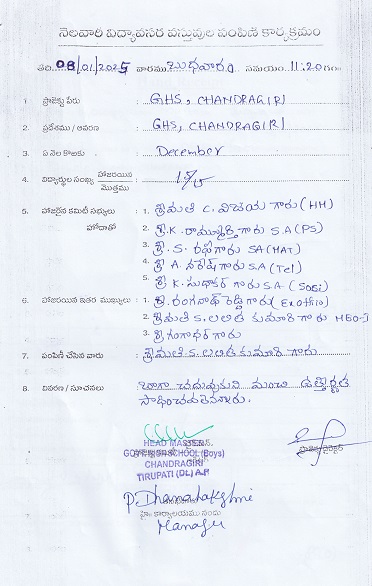 నెలవారి విద్యావసర వస్తువుల పంపిణి కార్యక్రమం
తేది: 08/01/2025 వారము బుధవారం సమయం 11:20 గం
1 ప్రాజెక్టు పేరు : GHS, CHANDRAGIRI
2. ప్రదేశము / ఆవరణ : GHS, CHANDRAGIRI
3. ఏ నెల కొఱకు : December
4. విద్యార్థుల సంఖ్య హాజరయిన మొత్తము : 15/15
5. హాజరైన కమిటీ సభ్యులు హోదాతో : 1. శ్రీమతి C. విజయ గారు (HM)
2. శ్రీ.K. రామ్మూర్తి గారు S.A (PS)
3. శ్రీ. S. రఫీ గారు SA (MAT)
4. శ్రీ A. నరేష్ గారు S.A (Tel)
5. శ్రీ K. సుధాకర్ గారు S.A (Soci)
6. హాజరయిన ఇతర ముఖ్యులు : 1. శ్రీ. రంగనాథ్ రెడ్డి గారు (Exoffio)
2. శ్రీమతి S. లలిత కుమారి గారు MEO-I
3. శ్రీ గంగాధర్ గారు
7. పంపిణీ చేసిన వారు : శ్రీమతి S. లలిత కుమారి గారు
8 వివరణ / సూచనలు : బాగా చదువుకుని మంచి ఉత్తీర్ణత
సాధించవలెనన్నారు.
HEAD MASTER
GOVT HIGH SCHOOL (Boys)
CHANDRAGIRI
TIRUPATI (Dt.) A.P
ప్రాజెక్టు డైరెక్టర్
P. Dhanalakshmi
హెం కార్యాలయము నందు
Manager